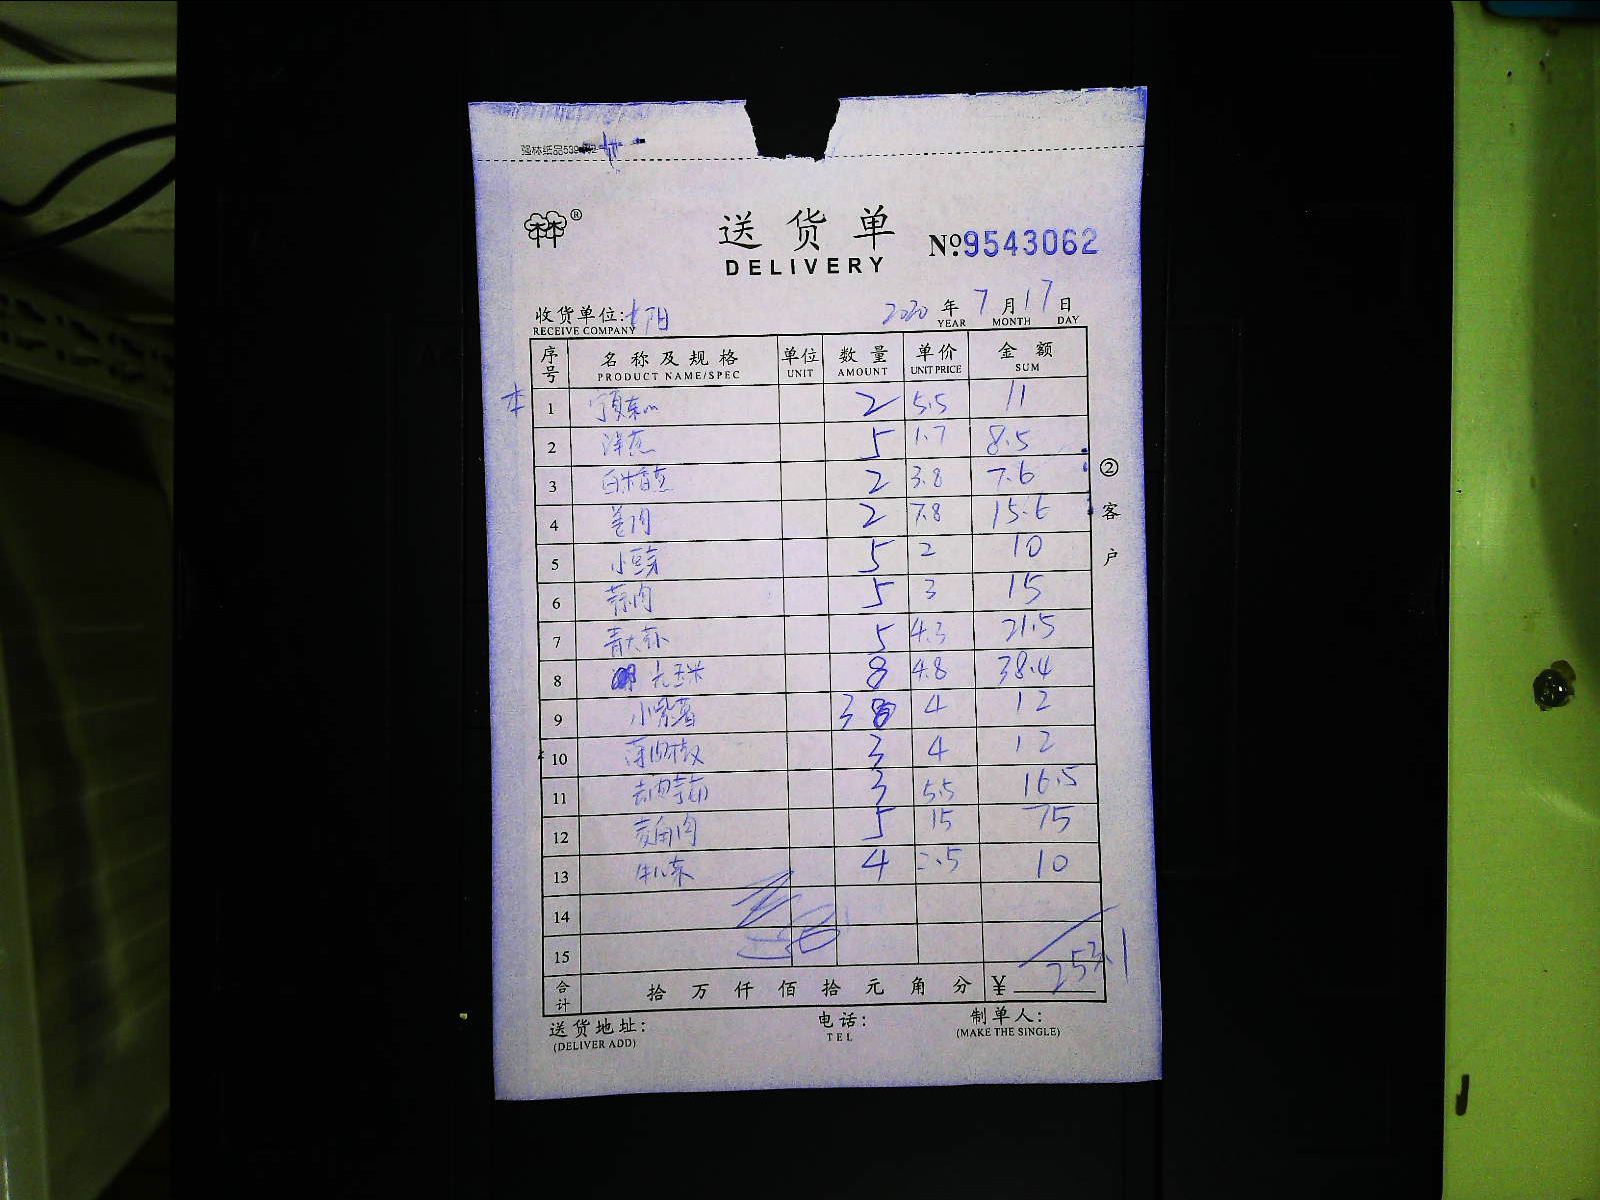 强林纸品539
林 ®
送货单
DELIVERY
№9543062
收货单位:
RECEIVE COMPANY
2020 年 7 月 17 日
YEAR MONTH DAY
序号 名称及规格 单位 数量 单价 金额
PRODUCT NAME/SPEC UNIT AMOUNT UNIT PRICE SUM
1 2 5.5 11
2 洋葱 5 1.7 8.5
3 2 3.8 7.6
4 姜肉 2 7.8 15.6
5 小豆芽 5 2 10
6 蒜肉 5 3 15
7 5 4.3 21.5
8 玉米 8 4.8 38.4
9 小紫薯 3 4 12
10 3 4 12
11 3 5.5 16.5
12 5 15 75
13 4 2.5 10
14
15
合计 拾 万 仟 佰 拾 元 角 分 ¥ 253.1
② 客户
送货地址: 电话: 制单人:
(DELIVER ADD) TEL (MAKE THE SINGLE)